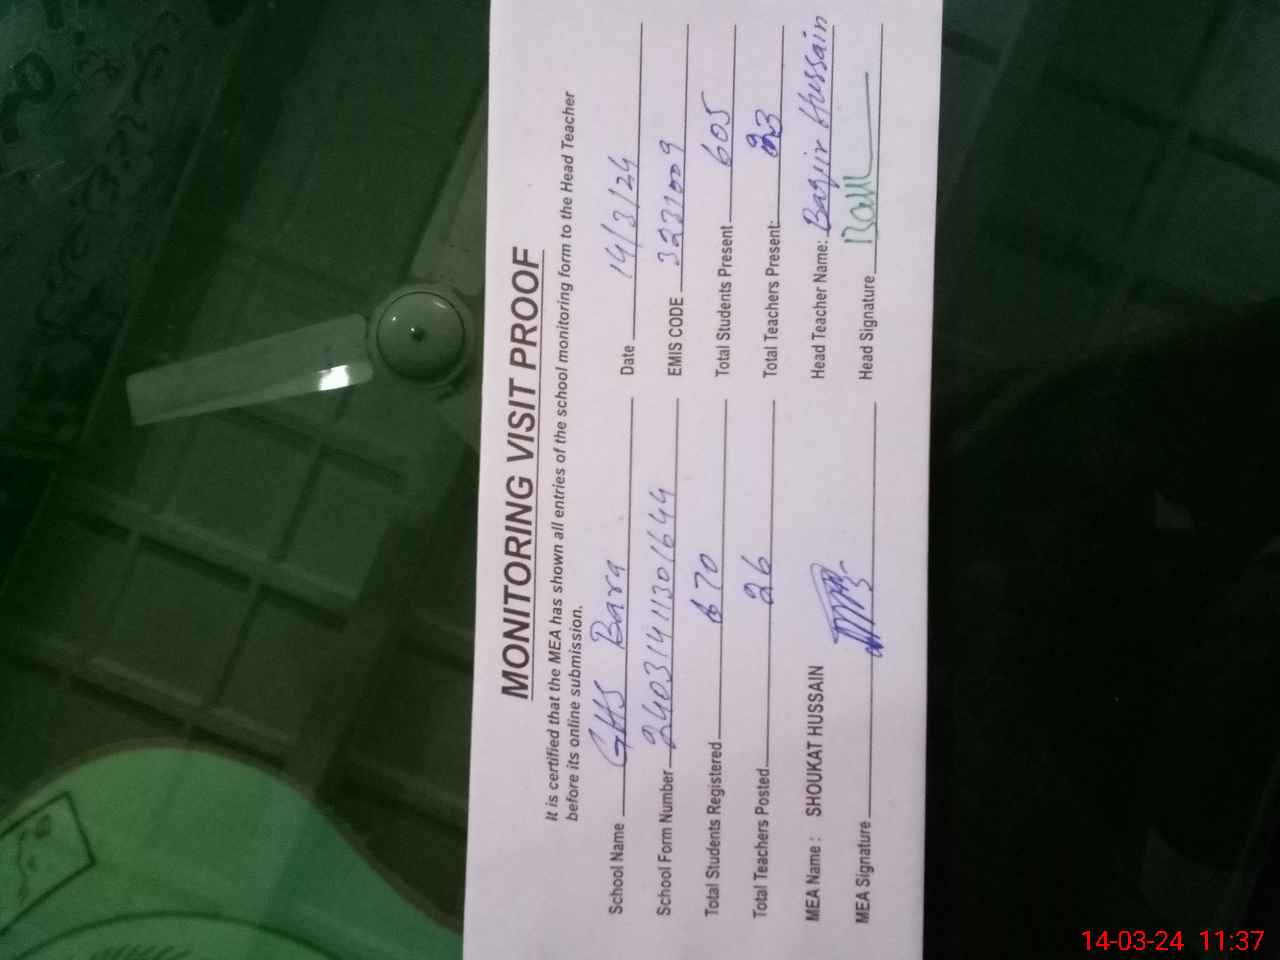 MONITORING VISIT PROOF
It is certified that the MEA has shown all entries of the school monitoring form to the Head Teacher
before its online submission.
School Name GHS Bara Date 14/3/24
School Form Number 24031411301644 EMIS CODE 3231009
Total Students Registered 670 Total Students Present 605
Total Teachers Posted 26 Total Teachers Present: 23
MEA Name : SHOUKAT HUSSAIN Head Teacher Name: Hussain
MEA Signature Head Signature
14-03-24 11:37